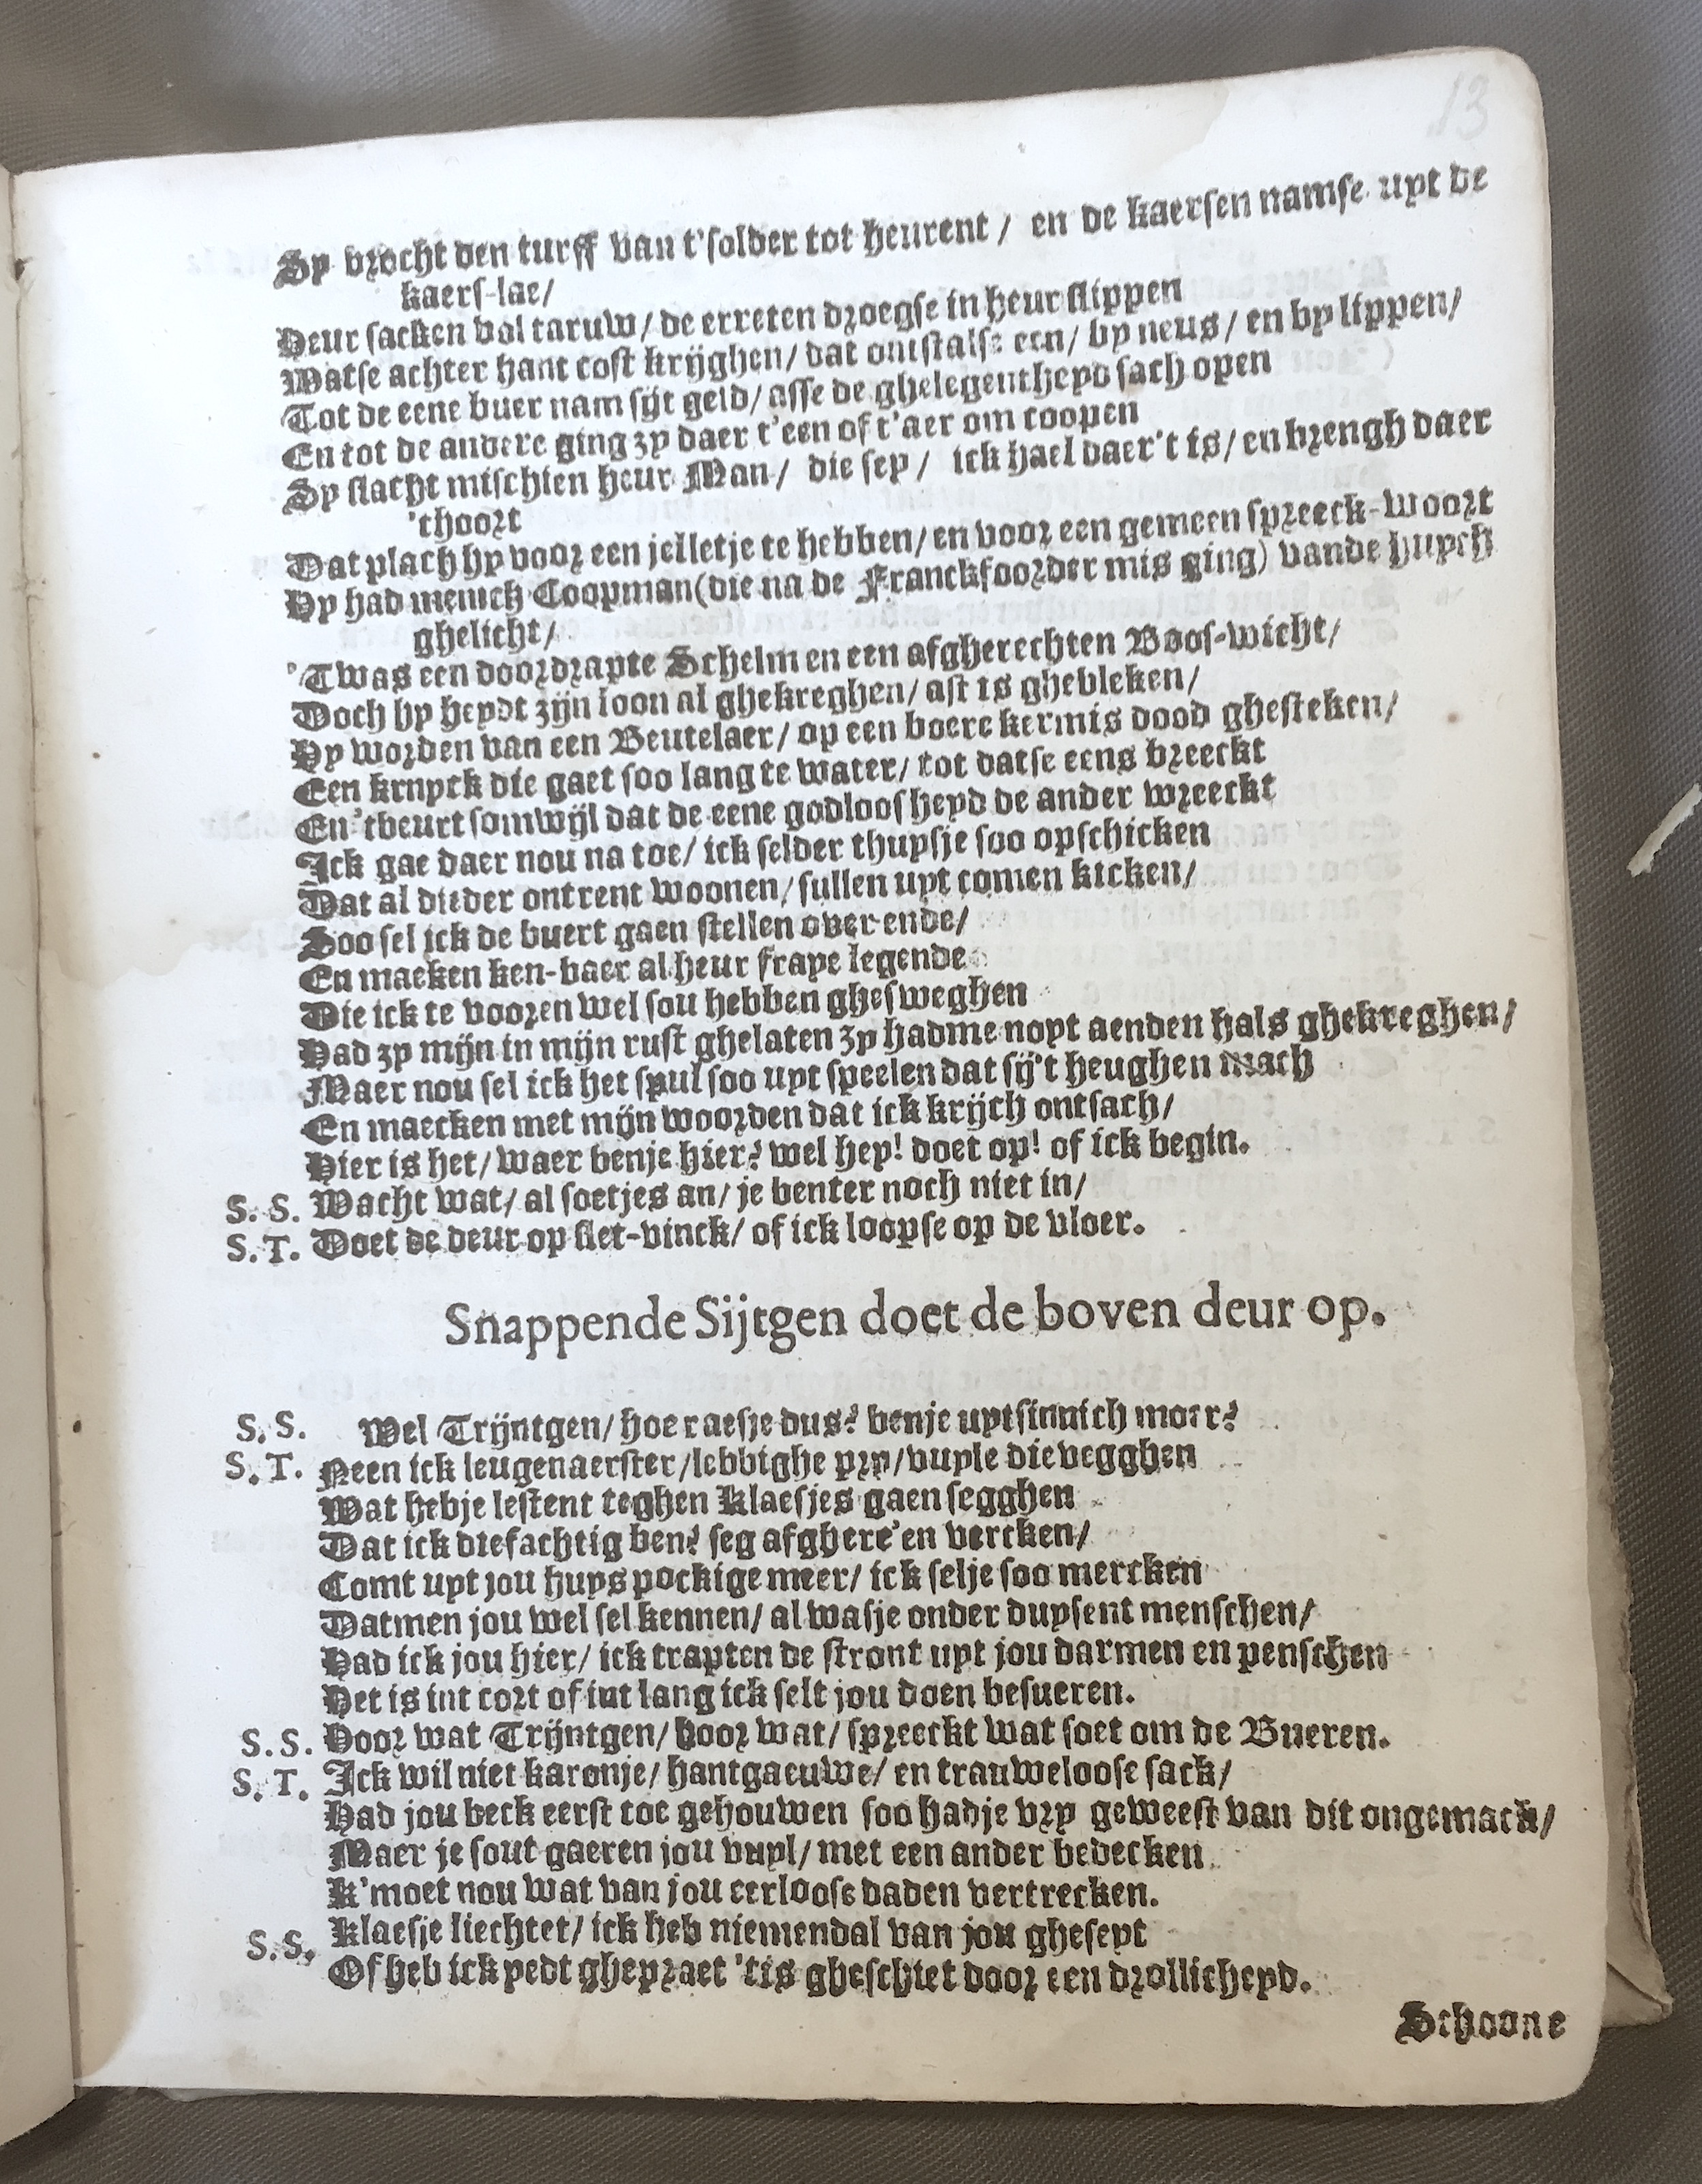 13
Sy brocht den turff van t'solder tot heurent / en de kaersen namse uyt de
kaers-lae/
Heur sacken vol taruw/ de erreten droegse in heur slippen
Watse achter hant cost krijghen/ dat ontstalse een/ by neus/ en by lippen/
Tot de eene buer nam sijt geld/ asse de ghelegentheyd sach open
En tot de andere ging zy daer t'een of t'aer om coopen
Sy slacht mischien heur Man/ die sey/ ick hael daer't is/ en brengh daer
'thoort
Dat plach hy voor een jelletje te hebben/ en voor een gemeen spreeck-woort
Hy had menich Coopman (die na de Franckfoorder mis ging) vande huych
ghelicht/
'Twas een doordrapte Schelm en een afgherechten Boos-wicht/
Doch hy heydt zijn loon al ghekreghen/ ast is ghebleken/
Hy worden van een Beutelaer/ op een boere kermis dood ghesteken/
Een kruyck die gaet soo lang te water/ tot datse eens breeckt
En 'tbeurt somwijl dat de eene godloosheyd de ander wreeckt
Ick gae daer nou na toe/ ick selder thuysje soo opschicken
Dat al dieder ontrent woonen/ sullen uyt comen kicken/
Soo sel ick de buert gaen stellen over ende/
En maeken ken-baer al heur fraye legende
Die ick te vooren wel sou hebben ghesweghen
Had zy mijn in mijn rust ghelaten zy hadme noyt aenden hals ghekreghen/
Maer nou sel ick het spul soo uyt speelen dat sij't heughen mach
En maecken met mijn woorden dat ick krijch ontsach/
Hier is het/ waer benje hier? wel hey! doet op! of ick begin.
S. S. Wacht wat/ al soetjes an/ je benter noch niet in/
S. T. Doet de deur op slet-vinck/ of ick loopse op de vloer.
Snappende Sijtgen doet de boven deur op.
S. S. Wel Trijntgen/ hoe raesje dus? benje uytsinnich moer?
S. T. Neen ick leugenaerster/ lebbighe pry/ vuyle dievegghen
Wat hebje lestent teghen Klaesjes gaen segghen
Dat ick diefachtig ben? seg afghere'en vercken/
Comt uyt jou huys pockige meer/ ick selje soo mercken
Datmen jou wel sel kennen/ al wasje onder duysent menschen/
Had ick jou hier/ ick trapten de stront uyt jou darmen en penschen
Het is int cort of int lang ick selt jou doen besueren.
S. S. Hoor wat Trijntgen/ hoor wat/ spreeckt wat soet om de Bueren.
S. T. Ick wil niet karonje/ hantgaeuwe/ en trauweloose sack/
Had jou beck eerst toe gehouwen soo hadje vry geweest van dit ongemack/
Maer je sout gaeren jou vuyl/ met een ander bedecken
K'moet nou wat van jou eerloose daden vertrecken.
S. S. Klaesje liechtet/ ick heb niemendal van jou gheseyt
Of heb ick yedt ghepraet 'tis gheschiet door een drollicheyd.
Schoone